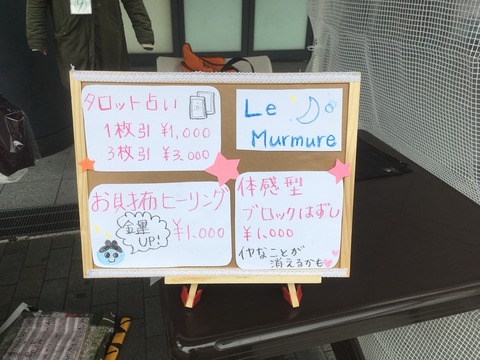 タロット占い
1枚引 ¥1,000
3枚引 ¥3,000
Le
Murmure
お財布ヒーリング
金星
UP!
¥1,000
体感型
ブロックはずし
¥1,000
イヤなことが
消えるかも